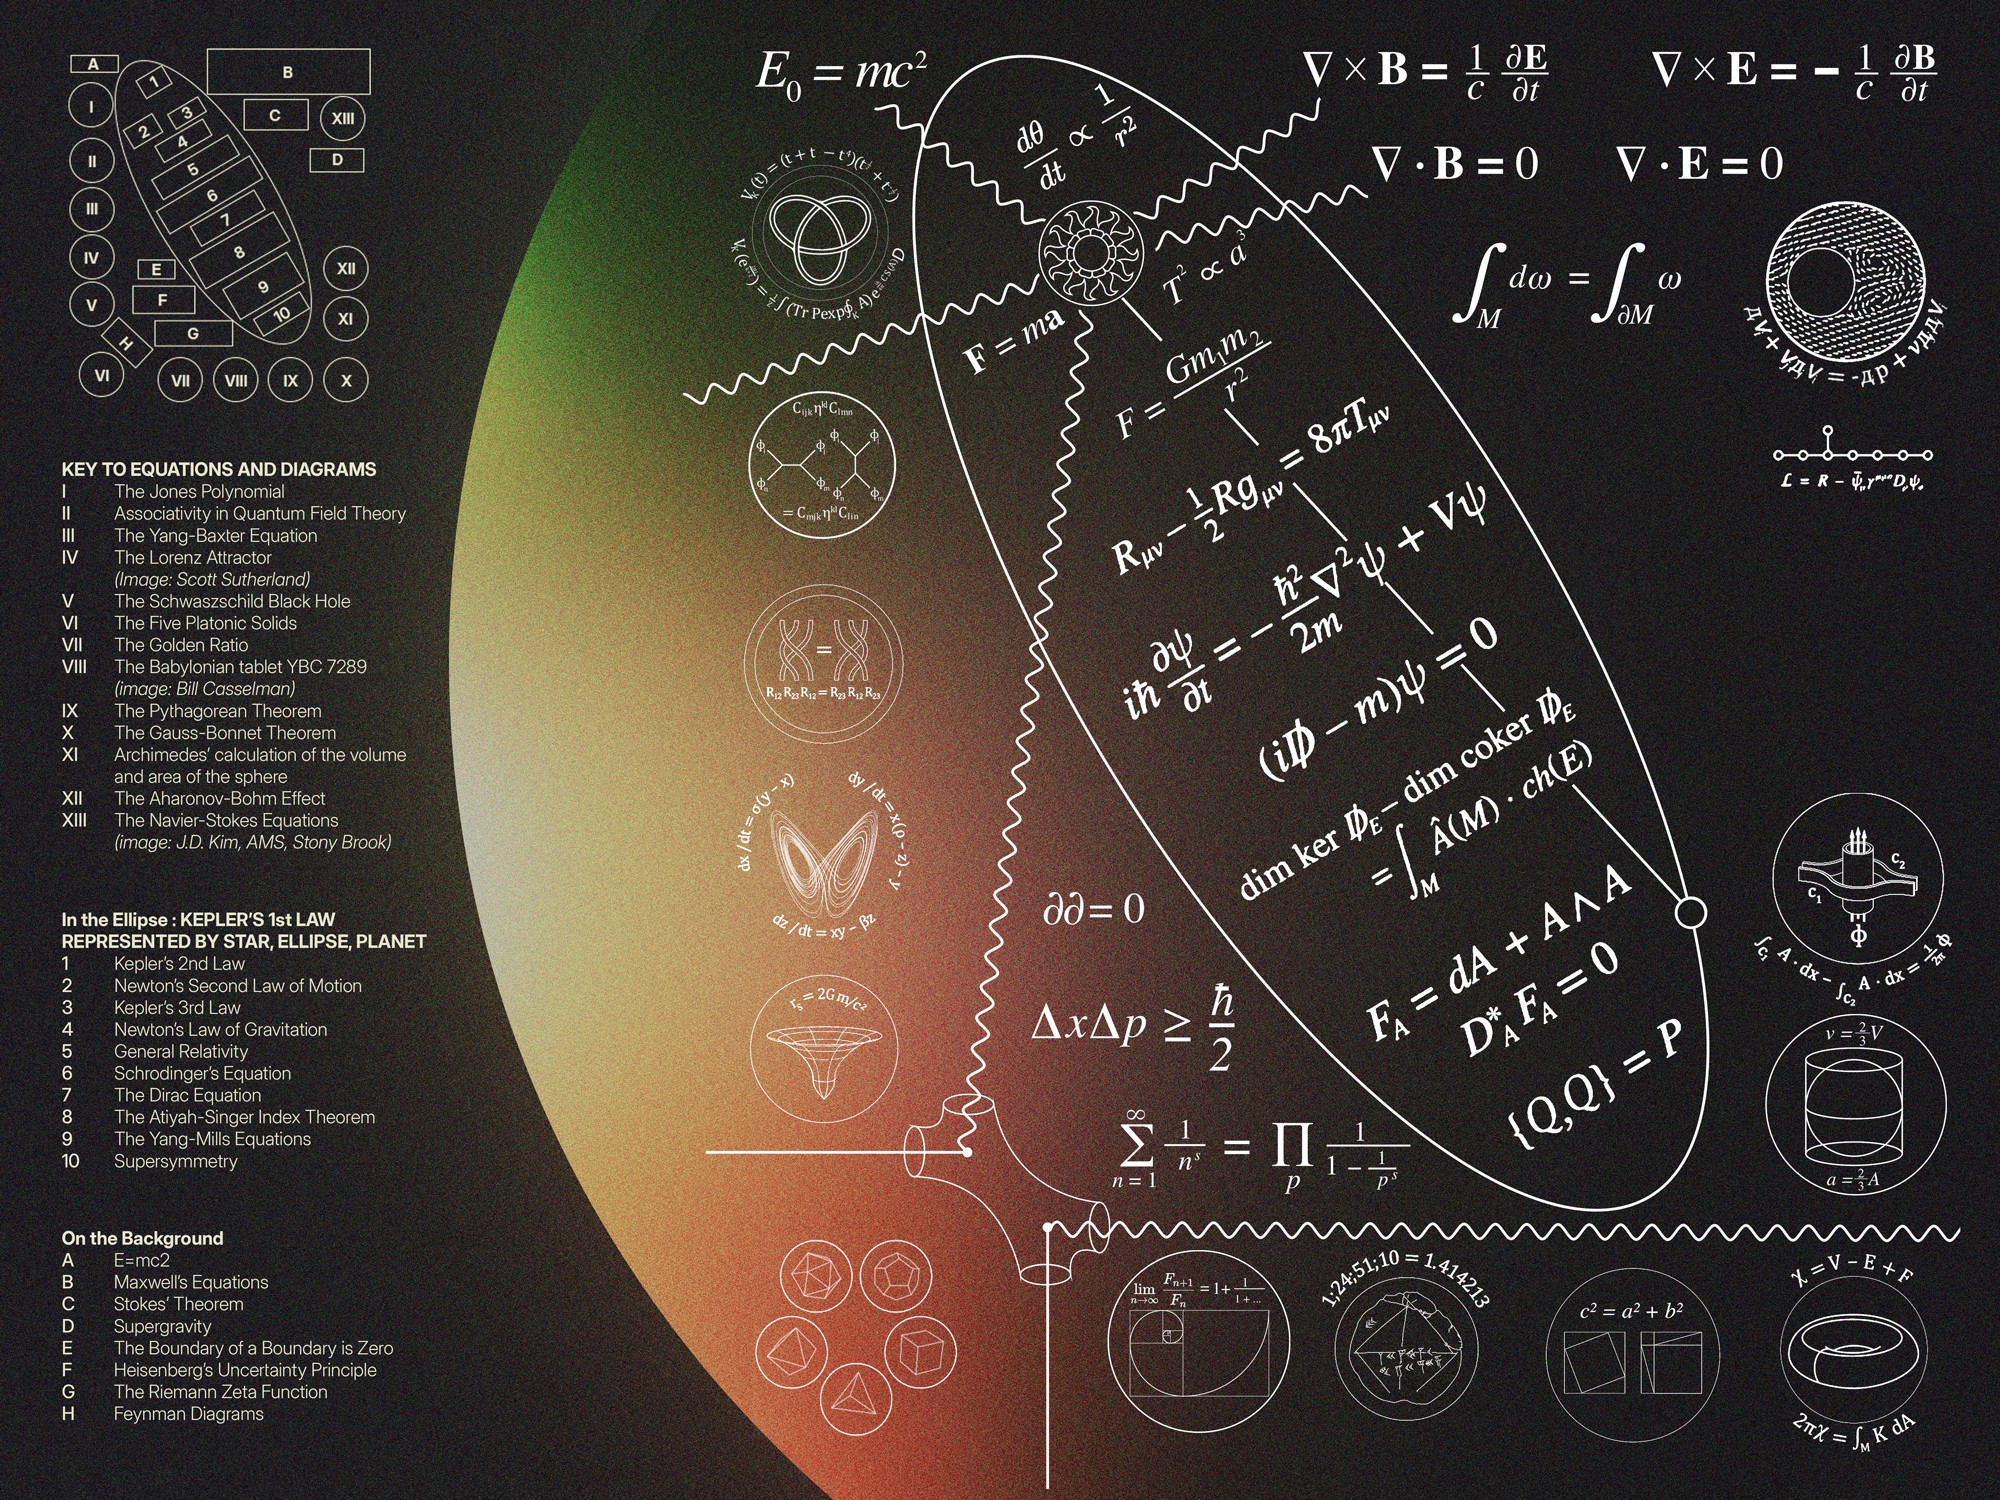 A
B
C
D
E
F
G
H
I
II
III
IV
V
VI
VII
VIII
IX
X
XI
XII
XIII
1
2
3
4
5
6
7
8
9
10
KEY TO EQUATIONS AND DIAGRAMS
I The Jones Polynomial
II Associativity in Quantum Field Theory
III The Yang-Baxter Equation
IV The Lorenz Attractor
(Image: Scott Sutherland)
V The Schwaszschild Black Hole
VI The Five Platonic Solids
VII The Golden Ratio
VIII The Babylonian tablet YBC 7289
(image: Bill Casselman)
IX The Pythagorean Theorem
X The Gauss-Bonnet Theorem
XI Archimedes’ calculation of the volume
and area of the sphere
XII The Aharonov-Bohm Effect
XIII The Navier-Stokes Equations
(image: J.D. Kim, AMS, Stony Brook)
In the Ellipse : KEPLER’S 1st LAW
REPRESENTED BY STAR, ELLIPSE, PLANET
1 Kepler’s 2nd Law
2 Newton’s Second Law of Motion
3 Kepler’s 3rd Law
4 Newton’s Law of Gravitation
5 General Relativity
6 Schrodinger’s Equation
7 The Dirac Equation
8 The Atiyah-Singer Index Theorem
9 The Yang-Mills Equations
10 Supersymmetry
On the Background
A E=mc2
B Maxwell’s Equations
C Stokes’ Theorem
D Supergravity
E The Boundary of a Boundary is Zero
F Heisenberg’s Uncertainty Principle
G The Riemann Zeta Function
H Feynman Diagrams
E₀ = mc²
∇ × B = 1/c ∂E/∂t
∇ × E = - 1/c ∂B/∂t
∇ · B = 0
∇ · E = 0
∫_M dω = ∫_∂M ω
dθ/dt ∝ 1/r²
T² ∝ a³
F = ma
F = Gm₁m₂/r²
R_μν − 1/2 Rg_μν = 8πT_μν
iħ ∂ψ/∂t = − ħ²/2m ∇²ψ + Vψ
(iD̸ − m)ψ = 0
dim ker D̸_E − dim coker D̸_E
= ∫_M Â(M) · ch(E)
F_A = dA + A ∧ A
D*_A F_A = 0
{Q,Q} = P
C_ijk η^kl C_lmn
ϕ_i ϕ_j ϕ_n ϕ_m
= C_mjk η^kl C_lin
=
R₁₂ R₂₃ R₁₂ = R₂₃ R₁₂ R₂₃
dx/dt = σ(y − x)
dy/dt = x(ρ − z) − y
dz/dt = xy − βz
r_s = 2Gm/c²
∂∂ = 0
ΔxΔp ≥ ħ/2
∑ n = 1 ∞ 1/n^s = ∏ p 1/(1 − 1/p^s)
C₁
C₂
Φ
∫_C₁ A · dx − ∫_C₂ A · dx = 1/2π Φ
v = 2/3 V
a = 2/3 A
lim n→∞ F_n+1/F_n = 1+ 1/1+ ...
1;24;51;10 = 1.414213
c² = a² + b²
χ = V − E + F
2πχ = ∫_M K dA